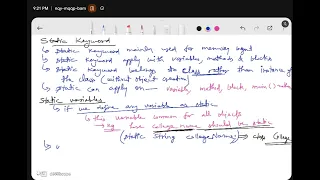 9:31 PM | nqy-mqgp-bam
Static Keyword
↳ static keyword mainly used for memory mgmt
↳ static keyword apply with variables, methods & blocks
↳ static keyword belongs to class rather than instance of
the class (without object creation)
↳ static can apply on → variable, method, block, inner class
Static variables
↳ if we define any variable as static
↳ this variable common for all objects
→ eg here college name should be static
(static String collegeName) ⇒ class College
↳